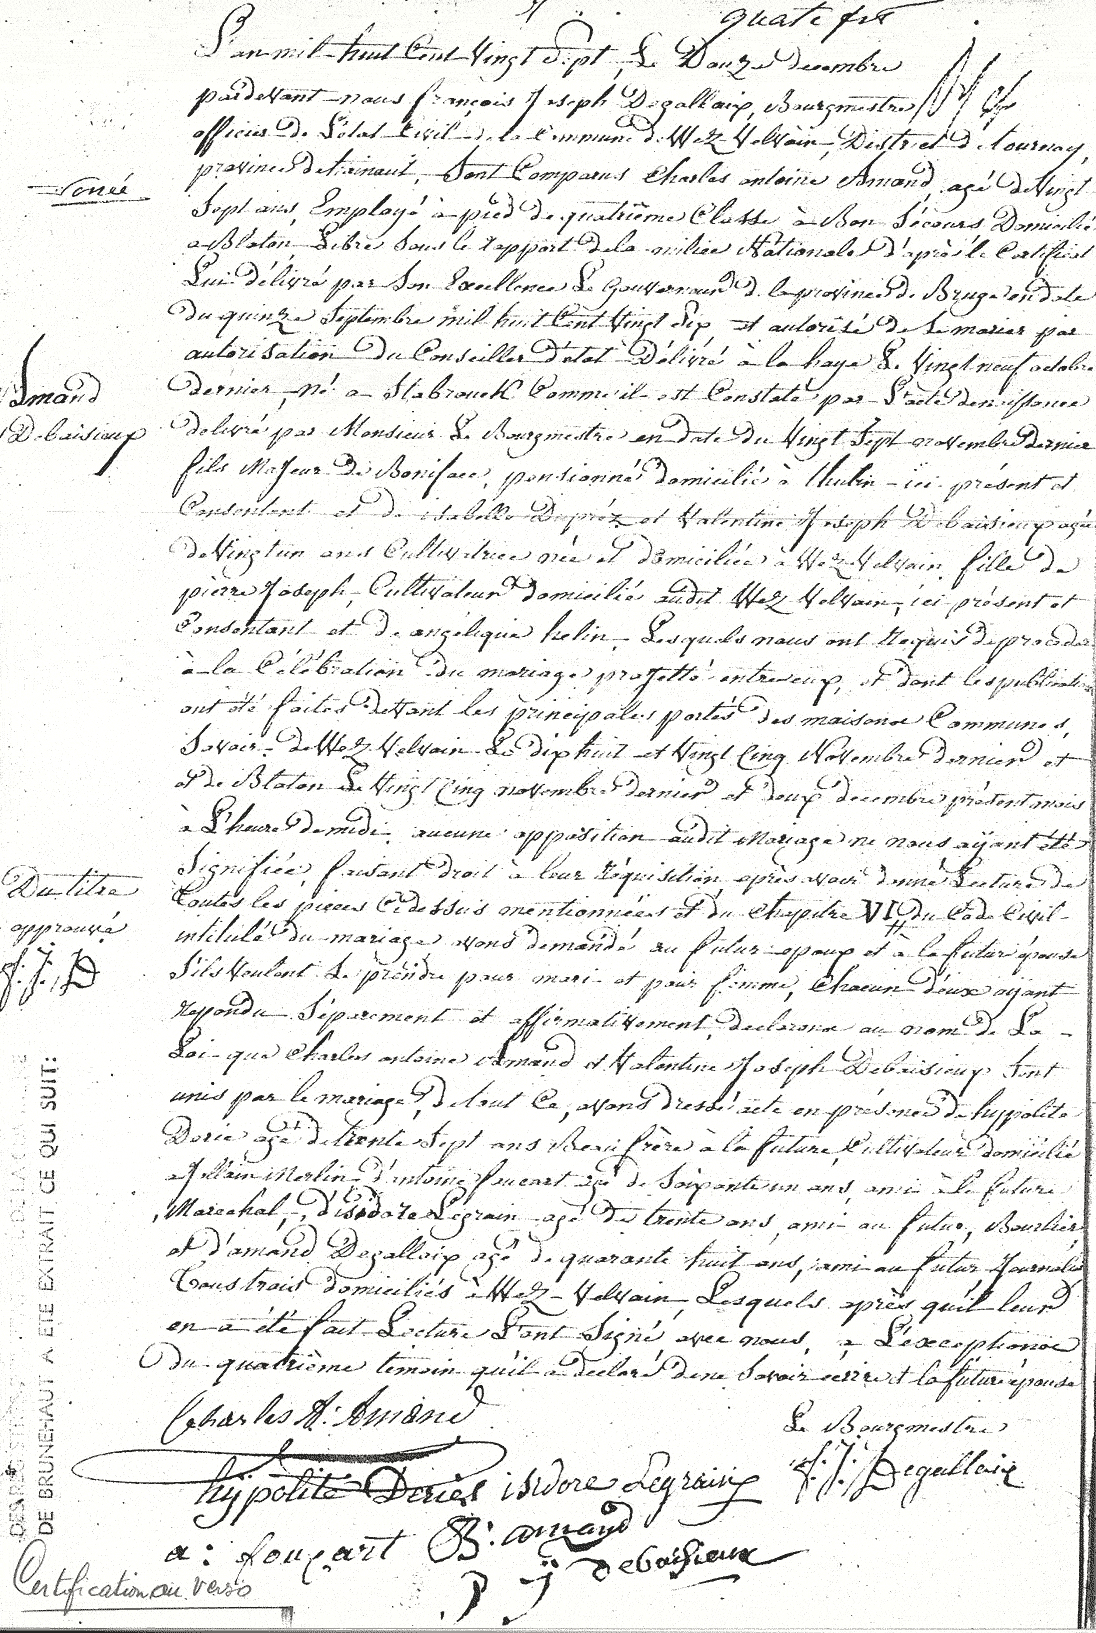 quate fre
L'an mil huit Cent Vingt Sept, Le Douze decembre
pardevant nous françois Joseph Degallaix, Bourgmestre
officier de L'état Civil de la Commune de Wez Velvain, District de tournay,
province de hainaut, Sont Comparus Charles antoine Amand, agé de Vingt
Sept ans, Employé à pied de quatrième Classe à Bon Sécours Domicilié
a Blaton Libre Sous le rapport de la milice Nationale d'après le Certificat
Lui délivré par Son Excellence Le Gouverneur de la province de Bruge en date
du quinze Septembre mil huit Cent Vingt Six et autorisé de Se marier par
autorisation du Conseiller d'état Délivré à la haye Le Vingt neuf octobre
dernier, né a Stabrouck Comme il est Constaté par L'acte de naissance
delivré par Monsieur Le Bourgmestre en date du Vingt Sept novembre dernier
fils Majeur de Boniface, pensionné domicilié à thulin ici présent et
Consentent et de isabelle Dupréz et Valentine Joseph Debaisieux agée
de Vingt un ans Cultivatrice née et domiciliée à Wez Velvain fille de
pierre Joseph, Cultivateur domicilié audit Wez Velvain, ici présent et
Consentant et de angélique helin, Lesquels nous ont Requis de proceder
à la Célébration du mariage projetté entre eux, et dont les publications
ont été faites devant les principales portes des maisons Communes,
Savoir de Wez Velvain Le dix huit et Vingt Cinq Novembre dernier et
et de Blaton Le Vingt Cinq novembre dernier et deux décembre présent mois
à L'heure de midi, aucune opposition audit Mariage ne nous ayant été
Signifiée faisant droit à leur réquisition, après avoir donné Lecture de
Toutes les pièces Cidessus mentionnées et du Chapitre VI, du Code Civil
intitulé du mariage avons demandé au futur epoux et à la future épouse
S'ils Veulent Se prendre pour mari et pour femme, Chacun d'eux ayant
repondu Séparement et affirmativement, declarons au nom de La
Loi que Charles antoine Amand et Valentine Joseph Debaisieux Sont
unis par le mariage, de tout Ce, avons dressé acte en présence de hypolite
Derie agé de trente Sept ans Beau frère à la future, Cultivateur domicilié
a Jollain Merlin d'antoine foucart agé de Soixante un ans, ami à la future
Marechal, d'isidore Legrain agé de trente ans, ami au futur, Bourlier,
et d'amand Degallaix agé de quarante huit ans, ami au futur Journalier
Tous trois domiciliés à Wez Velvain, Lesquels après qu'il leur
en a été fait Lecture L'ont Signé avec nous, a L'exception
du quatrième témoin qu'il a declaré de ne Savoir écrire et la future épouse
Charles A: Amand
Le Bourgmestre
F. J. Degallaix
hypolite Deries isidore Legrain
a: foucart B: amand
P J debaisieux
Amand
Debaisieux
Du titre
approuvé
F. J. D
DE BRUNEHAUT A ETE EXTRAIT CE QUI SUIT:
Certification au verso